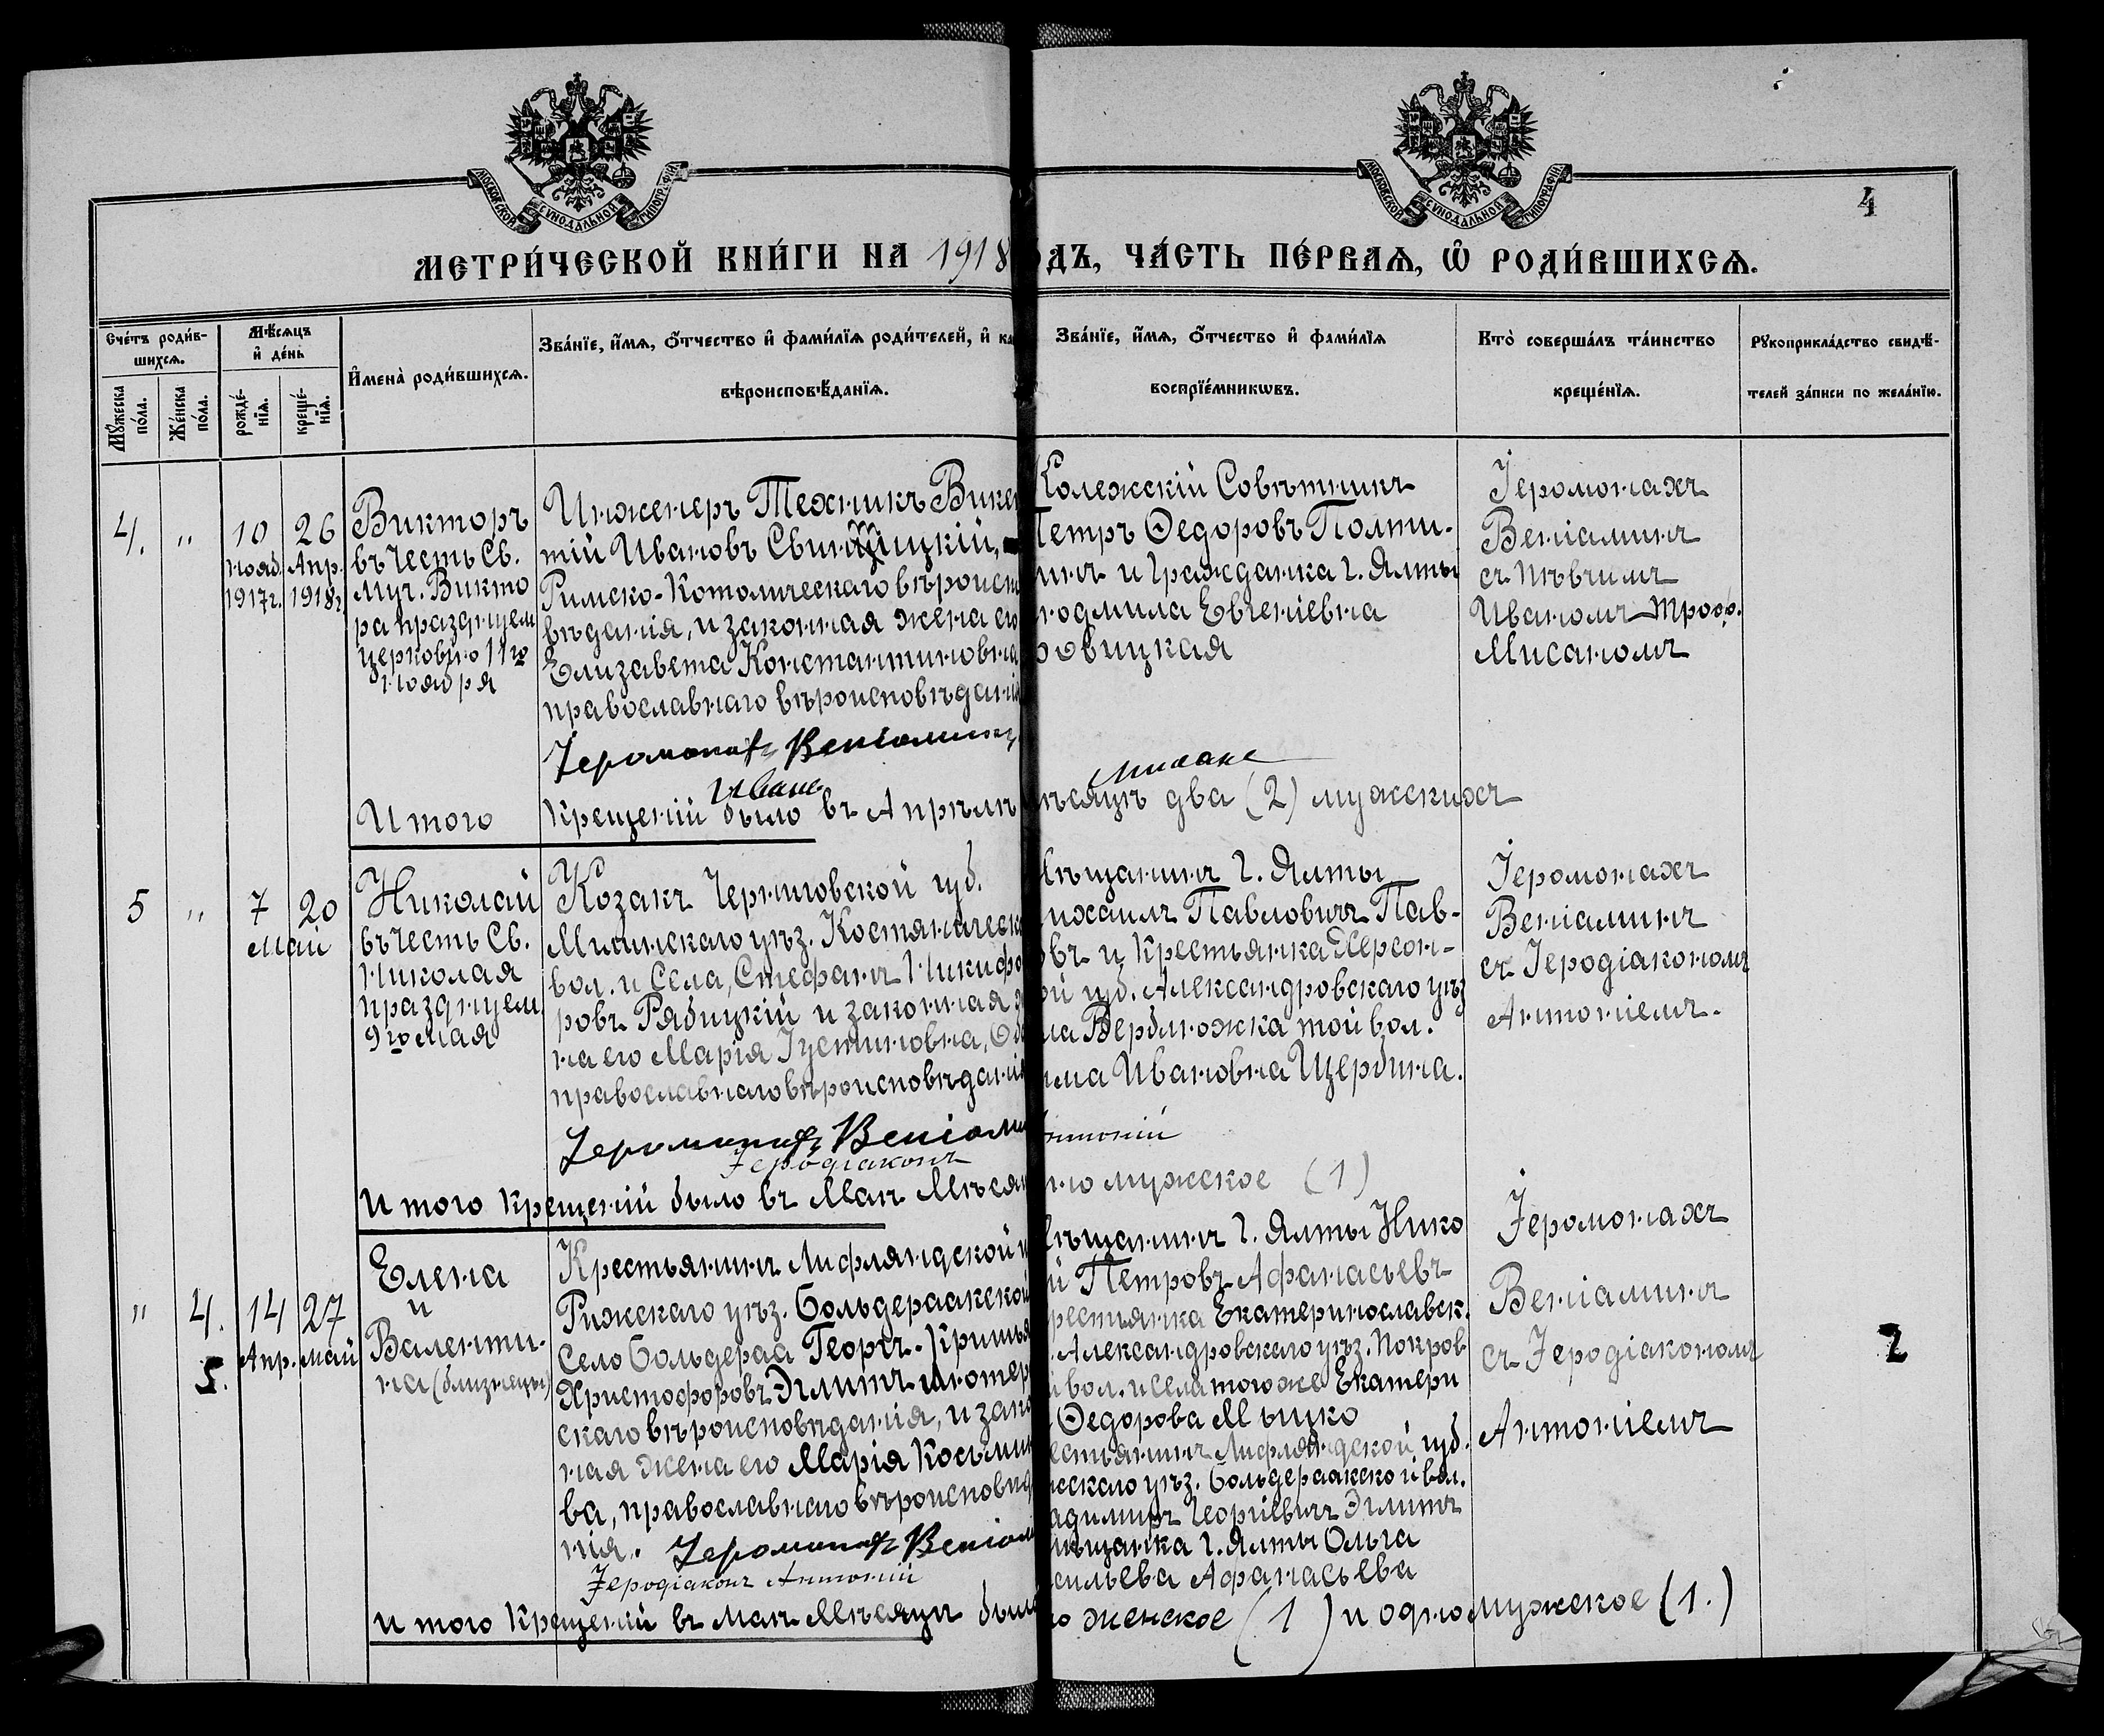 МОСКОВСКОЙ СѴНОДАЛЬНОЙ ТИПОГРАФІИ
МОСКОВСКОЙ СѴНОДАЛЬНОЙ ТИПОГРАФІИ
4
МЕТРИ́ЧЕСКОЙ КНИ́ГИ НА 1918
ОДЪ, ЧА́СТЬ ПЕ́РВАѦ, Ѽ РОДИ́ВШИХСѦ.
Сче́тъ роди́в-
шихсѧ.
Мꙋ́жеска по́ла.
Же́нска по́ла.
Мѣ́сѧцъ
и҆ де́нь
рожде́-
нїѧ.
креще́-
нїѧ.
И҆мена̀ роди́вшихсѧ.
Зва́нїе, и҆́мѧ, ѻ҆́тчество и҆ фами́лїѧ роди́телей, и҆ ка
вѣроисповѣ́данїѧ.
Зва́нїе, и҆́мѧ, ѻ҆́тчество и҆ фами́лїѧ
воспрїе́мникѡвъ.
Кто̀ соверша́лъ та́инство
креще́нїѧ.
Рꙋкоприкла́дство свидѣ́-
телей за́писи по жела́нїю.
4. " 10 26
нояб. Апр.
1917г. 1918г.
Викторъ
въ Честь Св.
Муч. Викто
ра празднуем
церковію 11го
ноября
Инженеръ Техникъ Викен
тій Ивановъ Свин ицкій,
Римско-Католическаго вѣроиспо
вѣданія, и законная жена его
Елизавета Константиновна
православнаго вѣроисповѣданія
Іеромонахъ Веніаминъ
Иванъ
Колежскій Совѣтникъ
Петръ Ѳедоровъ Полти-
нинъ и Гражданка г. Ялты
юдмила Евгеніевна
овицкая
Іеромонахъ
Веніаминъ
съ Пѣвчимъ
Иваномъ Троф.
Мисаномъ
Мисанъ
Итого Крещеній было въ Апрѣлѣ
ѣсяцѣ два (2) мужскихъ
5 " 7 20
Май
Николай
въ честь Св.
Николая
празднуем.
9го Мая
Козакъ Черниговской губ.
Мглинскаго уѣз. Костяническ
вол. и Села, Стефанъ Никифо
ровъ Рябицкій и законная ж
на его Марія Іустиновна, Об
православнаго вѣроисповѣданія
Іеромонахъ Веніами
Іеродіаконъ
ѣщанинъ г. Ялты
ихаилъ Павловичъ Пав-
овъ и Крестьянка Херсон-
ой губ. Александровскаго уѣз
ла Верблюжка той вол.
има Ивановна Щербина.
Антоній
Іеромонахъ
Веніаминъ
съ Іеродіакономъ
Антоніемъ.
И того Крещеній было въ Маѣ Мѣсяц
но мужское (1)
" 4. 14 27
5. Апр. май
Елена
и
Валенти-
на (близнецы)
Крестьянинъ Лифляндской
Рижскаго уѣз. Больдераакской
Село Больдераа Георгъ-Кришья
Христофоровъ Эглитъ лютер
скаго вѣроисповѣданія, и зако
ная жена его Марія Косьмин
ва, православнаго вѣроисповѣд
нія. Іеромонахъ Веніам
Іеродіаконъ Антоній
ѣщанинъ г. Ялты Нико
й Петровъ Афанасьевъ
рестьянка Екатеринославск.
. Александровскаго уѣз. Покров-
й вол. и села того же Екатери
Ѳедорова Мышко
естьянинъ Лифляндской губ.
жскаго уѣз. Больдераакской вол.
адимиръ Георгіевичъ Эглитъ
ѣщанка г. Ялты Ольга
сильева Афанасьева
Іеромонахъ
Веніаминъ
съ Іеродіакономъ
Антоніемъ
2
и того Крещеній въ Маѣ Мѣсяцѣ было
но женское (1) и одно мужское (1.)